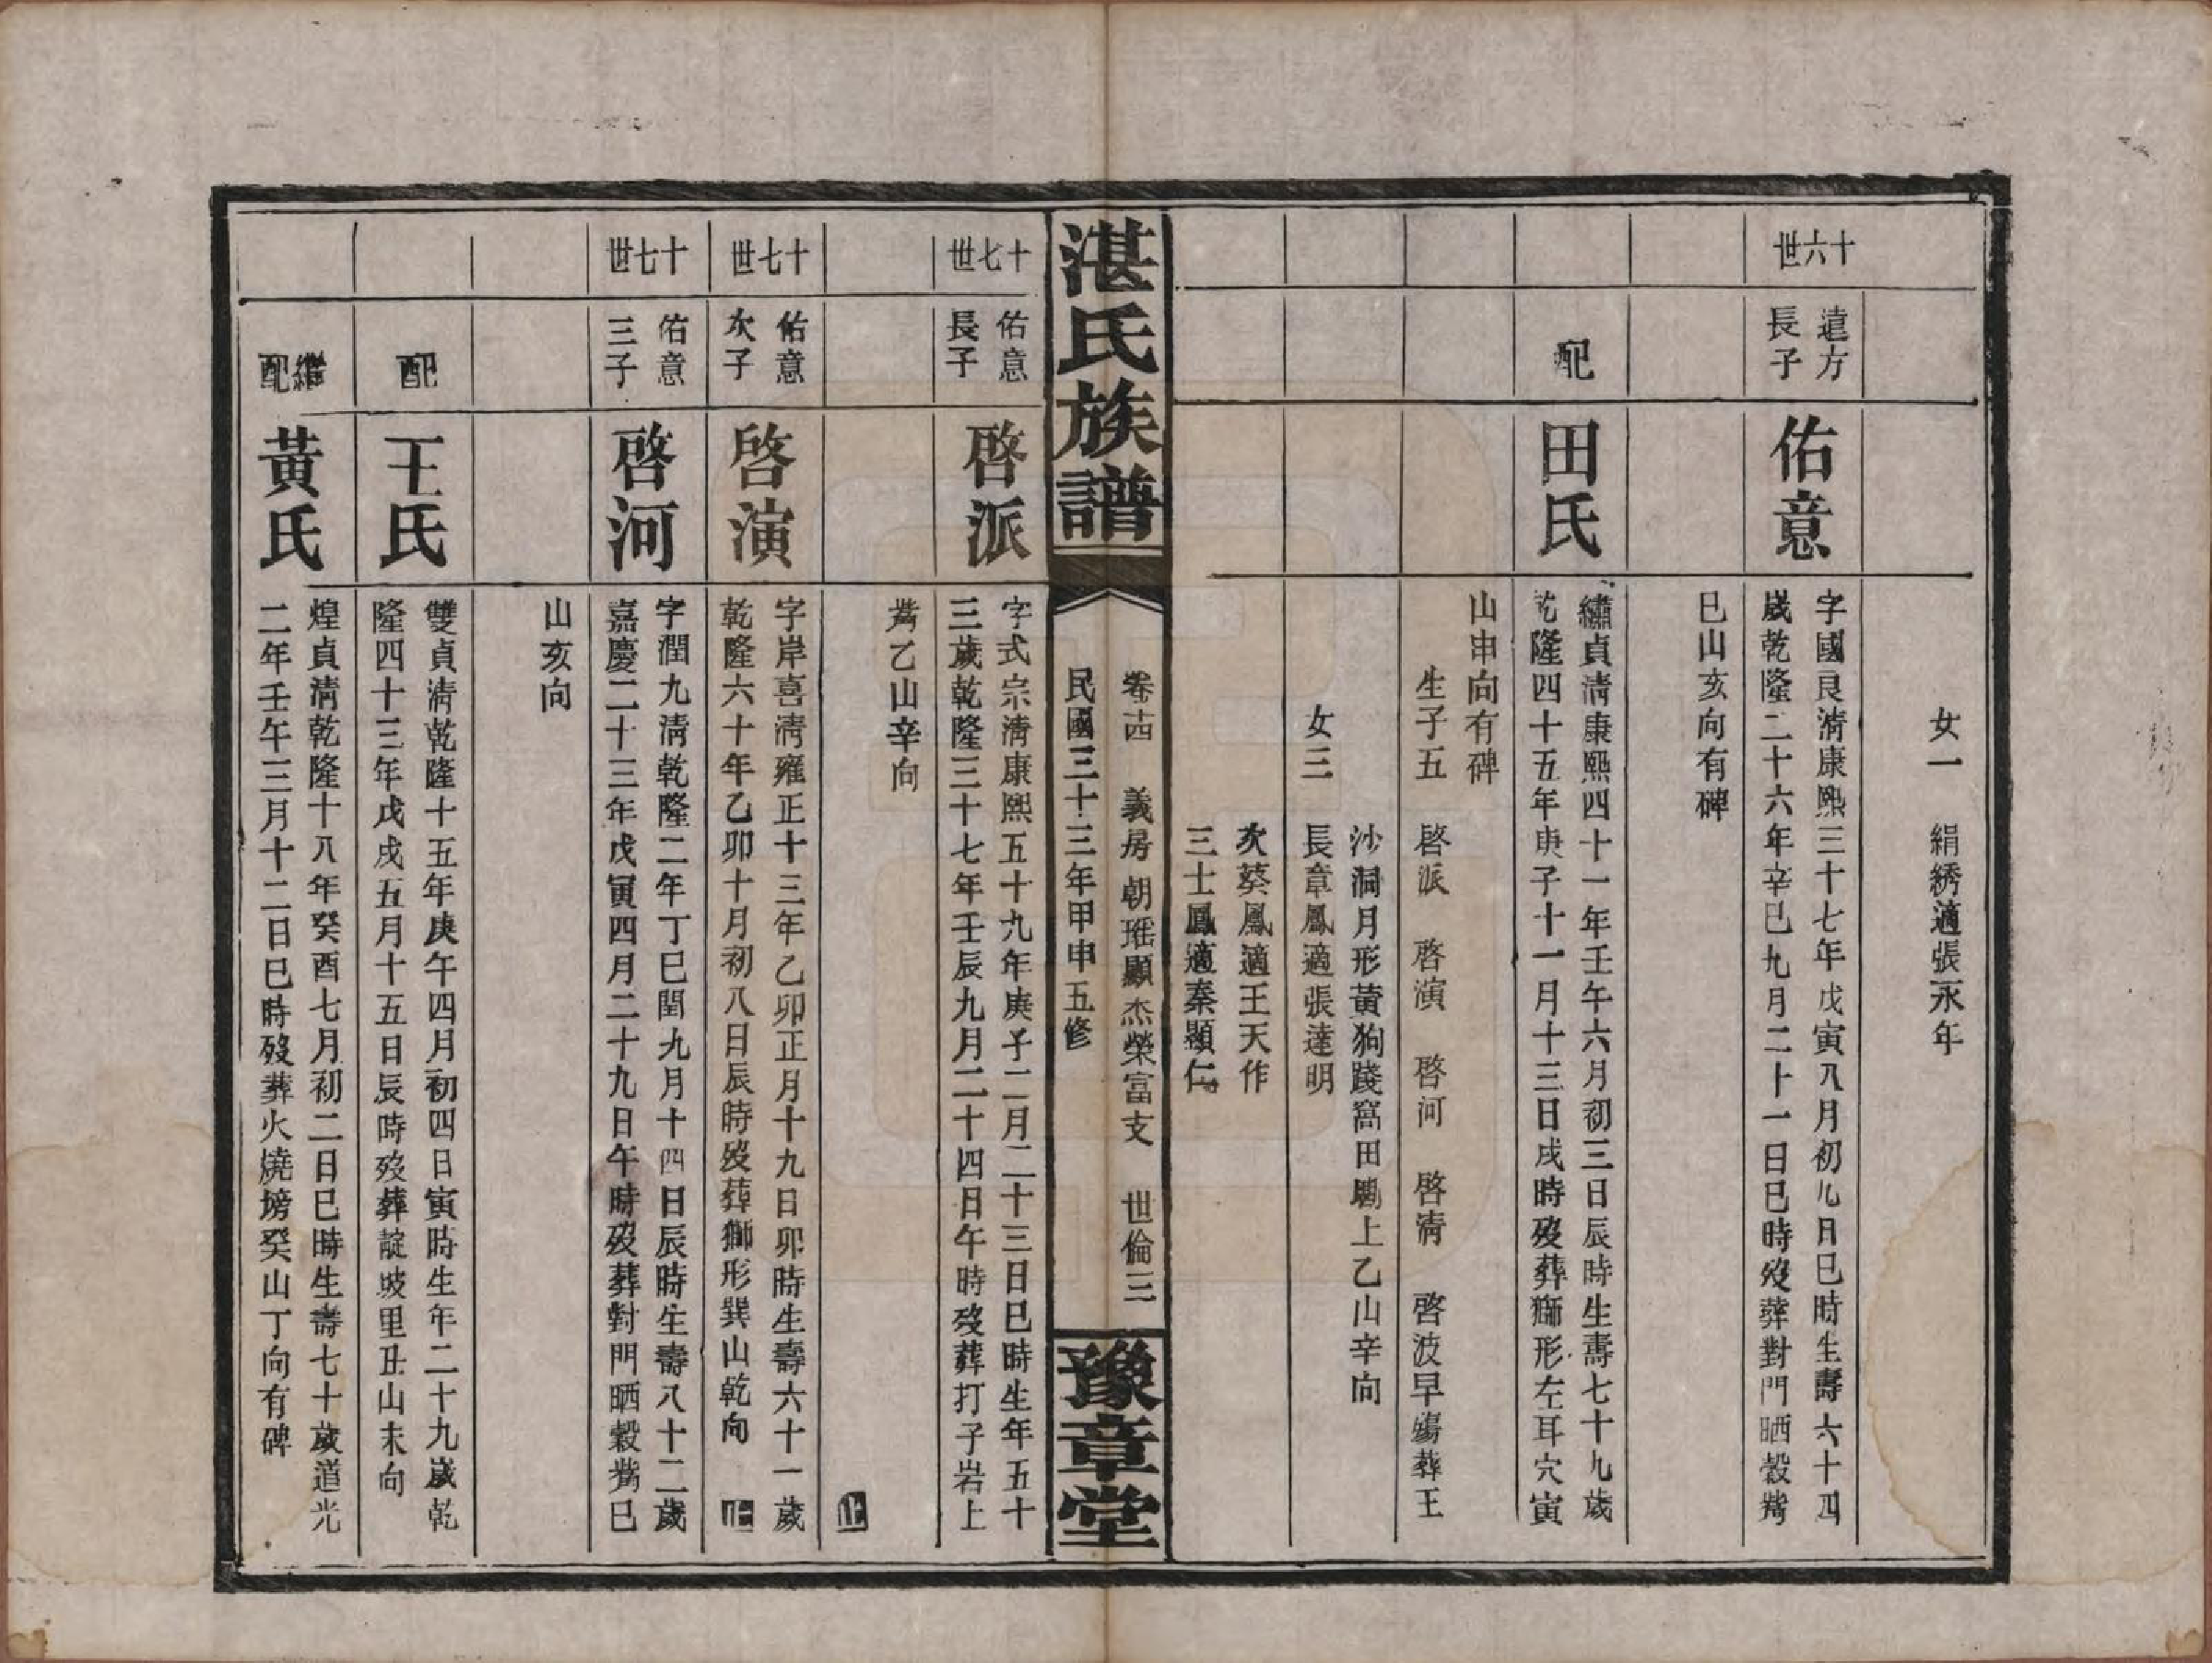 女一　絹綉適張永年
十六世
遠方
長子
佑意
字國良清康熙三十七年戊寅八月初九日巳時生壽六十四
歲乾隆二十六年辛巳九月二十一日巳時歿葬對門晒穀嘴
巳山亥向有碑
配
田氏
繡貞清康熙四十一年壬午六月初三日辰時生壽七十九歲
乾隆四十五年庚子十一月十三日戌時歿葬獅形左耳穴寅
山申向有碑
生子五　啓派　啓演　啓河　啓清　啓波早殤葬王
沙洞月形黃狗踐窩田塍上乙山辛向
女三　長章鳳適張達明
次葵鳳適王天作
三士鳳適秦顯仁
湛氏族譜
卷十四　義房朝瑤顯杰榮富支　世倫三
民國三十三年甲申五修
豫章堂
十七世
佑意
長子
啓派
字式宗清康熙五十九年庚子二月二十三日巳時生年五十
三歲乾隆三十七年壬辰九月二十四日午時歿葬打子岩上
嘴乙山辛向
止
十七世
佑意
次子
啓演
字岸喜清雍正十三年乙卯正月十九日卯時生壽六十一歲
乾隆六十年乙卯十月初八日辰時歿葬獅形巽山乾向　止
十七世
佑意
三子
啓河
字潤九清乾隆二年丁巳閏九月十四日辰時生壽八十二歲
嘉慶二十三年戊寅四月二十九日午時歿葬對門晒穀嘴巳
山亥向
配
王氏
雙貞清乾隆十五年庚午四月初四日寅時生年二十九歲乾
隆四十三年戊戌五月十五日辰時歿葬靛坡里丑山未向
繼配
黃氏
煌貞清乾隆十八年癸酉七月初二日巳時生壽七十歲道光
二年壬午三月十二日巳時歿葬火燒塝癸山丁向有碑